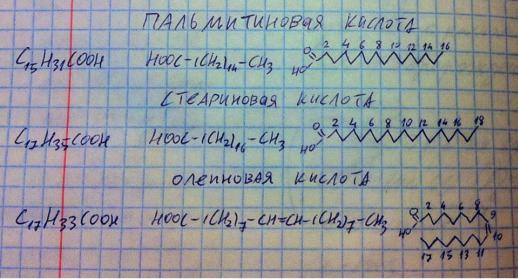 ПАЛЬМИТИНОВАЯ КИСЛОТА
C15H31COOH HOOC-(CH2)14-CH3 O HO 2 4 6 8 10 12 14 16
СТЕАРИНОВАЯ КИСЛОТА
C17H35COOH HOOC-(CH2)16-CH3 O HO 2 4 6 8 10 12 14 16 18
ОЛЕИНОВАЯ КИСЛОТА
C17H33COOH HOOC-(CH2)7-CH=CH-(CH2)7-CH3 O HO 2 4 6 8 9
10
17 15 13 11